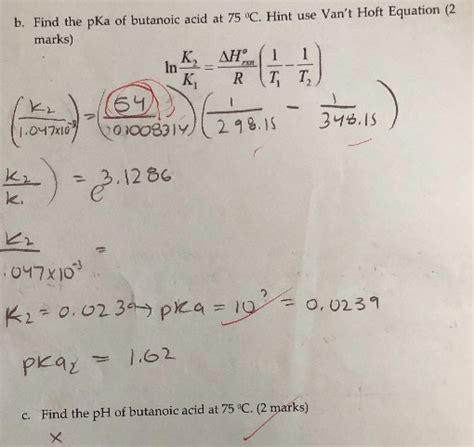 b. Find the pKa of butanoic acid at 75 ºC. Hint use Van't Hoft Equation (2
marks)
ln K₂/K₁ = ΔH°rxn/R (1/T₁ − 1/T₂)
(K₂/1.047x10⁻³) = (54/0.1008314) (1/298.15 − 1/348.15)
K₂/K₁) = e^3.1286
K₂/.047x10⁻³ =
K₂ = 0.0239 → pKa = 10^? = 0.0239
pKa₂ = 1.62
c. Find the pH of butanoic acid at 75 ºC. (2 marks)
x